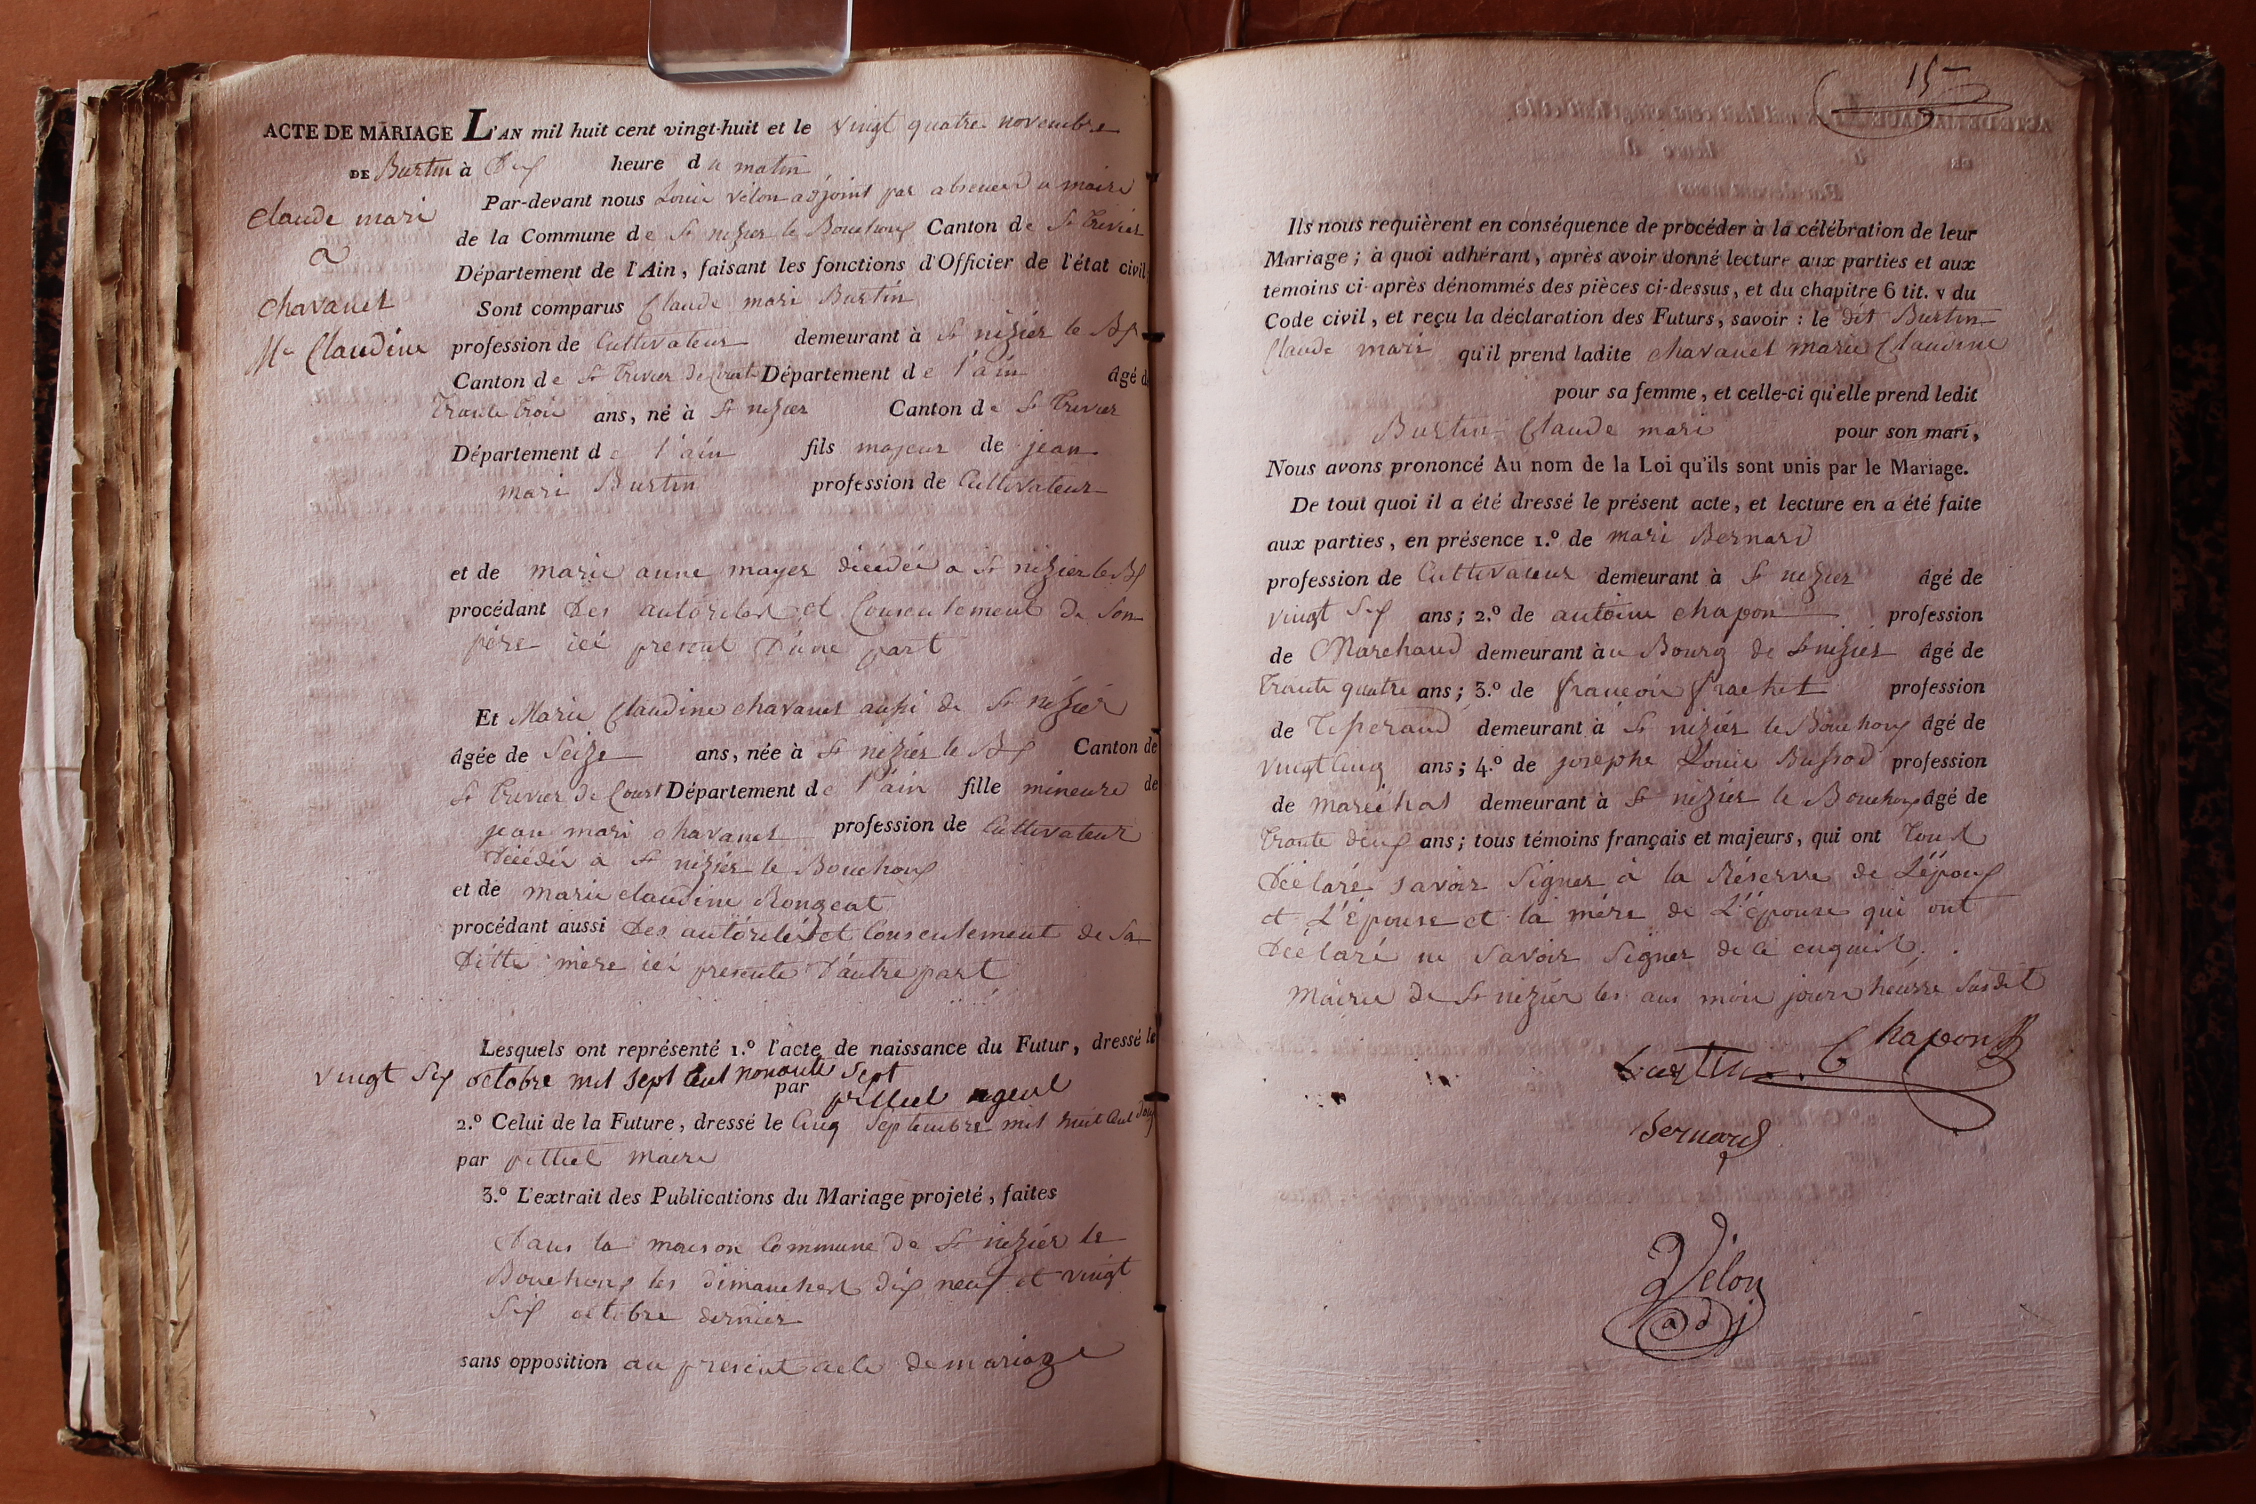 ACTE DE MARIAGE L'AN mil huit cent vingt-huit et le vingt quatre novembre
DE Burtin à Dix heure du matin
Claude mari
a
chavanet
Mie Claudine
Par-devant nous Louis Vélon adjoint par absence du maire
de la Commune de St nizier le Bouchoux Canton de St Trivier
Département de l'Ain, faisant les fonctions d'Officier de l'état civil
Sont comparus Claude mari Burtin
profession de Cultivateur demeurant à St nizier le Bx
Canton de St Trivier de Court Département de l'ain âgé de
Trante trois ans, né à St nizier Canton de St Trivier
Département de l'ain fils majeur de jean
mari Burtin profession de Cultivateur
et de marie anne mayer décédée a St nizier le Bx
procédant Des autorités et Consentement de Son
père ici present D'une part
Et Marie Claudine chavanet aussi de St nézier
âgée de Seize ans, née à St nizier le Bx Canton de
St Trivier de Court Département de l'ain fille mineure de
jean mari chavanet profession de Cultivateur
Décédé à St nizier le Bouchoux
et de marie claudine Rongeat
procédant aussi Des autorités et Consentement de Sa
Ditte mère ici presente D'autre part
Lesquels ont représenté 1.º l'acte de naissance du Futur, dressé le
vingt Six octobre mil Sept Cent nonante Sept
par pitiul agent
2.º Celui de la Future, dressé le Cinq Septembre mil huit Cent Douz
par pittiul maire
3.º L'extrait des Publications du Mariage projeté, faites
Dans la maison Commune de St nizier le
Bouchoux les dimanches dix neuf et vingt
Six octobre dernier
sans opposition au present acte de mariage
15
Ils nous requièrent en conséquence de procéder à la célébration de leur
Mariage; à quoi adhérant, après avoir donné lecture aux parties et aux
témoins ci-après dénommés des pièces ci-dessus, et du chapitre 6 tit. v du
Code civil, et reçu la déclaration des Futurs, savoir: le dit Burtin
Claude mari qu'il prend ladite chavanet marie Claudine
pour sa femme, et celle-ci qu'elle prend ledit
Burtin Claude mari pour son mari,
Nous avons prononcé Au nom de la Loi qu'ils sont unis par le Mariage.
De tout quoi il a été dressé le présent acte, et lecture en a été faite
aux parties, en présence 1.º de mari Bernard
profession de Cultivateur demeurant à St nizier âgé de
vingt Six ans; 2.º de antoine chapon profession
de Marchand demeurant àu Bourg de St nizier âgé de
Trante quatre ans; 3.º de françois frachet profession
de Tisserand demeurant à St nizier le Bouchoux âgé de
vingt Cinq ans; 4.º de josephe Louis Bussod profession
de maréchal demeurant à St nizier le Bouchoux âgé de
Trante deux ans; tous témoins français et majeurs, qui ont Tout
Déclaré savoir Signer à la Réserve de L'époux
et L'Épouse et la mère de L'épouse qui ont
Déclaré ne Savoir Signer de ce enquist,
Mairie de St nizier les ans mois jours heurre Susdit
Burtin Chapon
Bernard
Vélon
adj